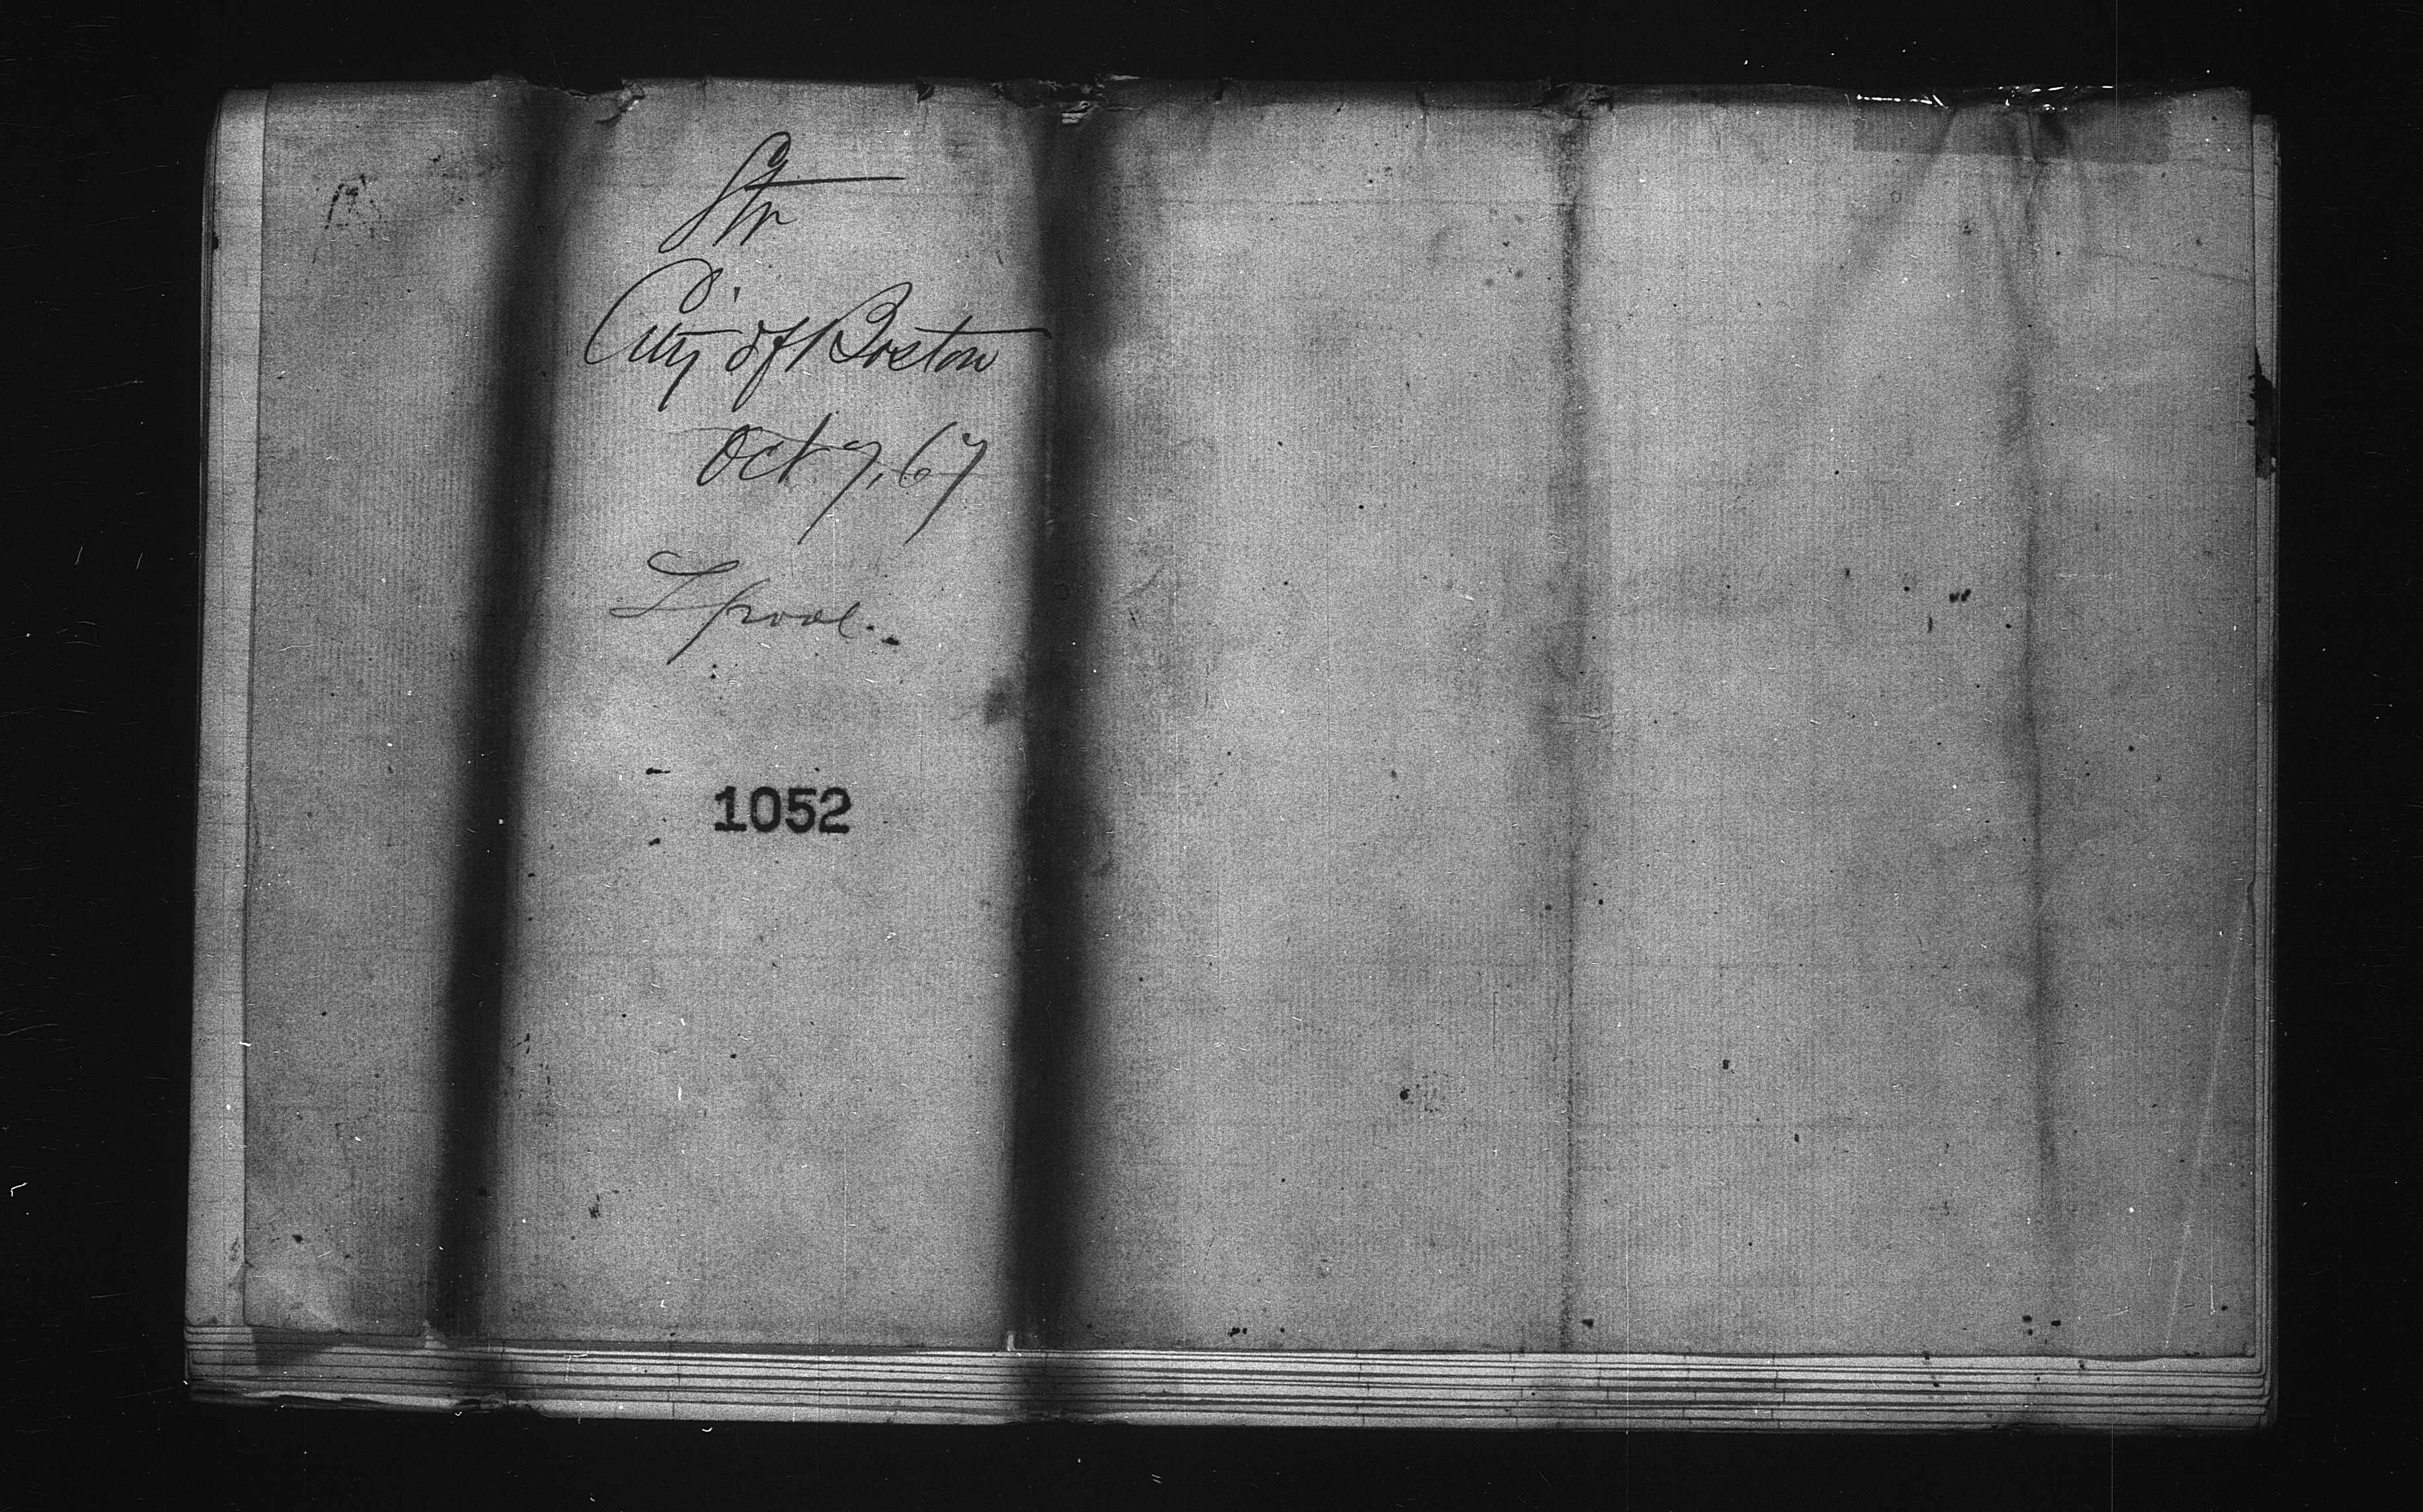 Str
City of Boston
Oct 7, 67
Lpool.
1052